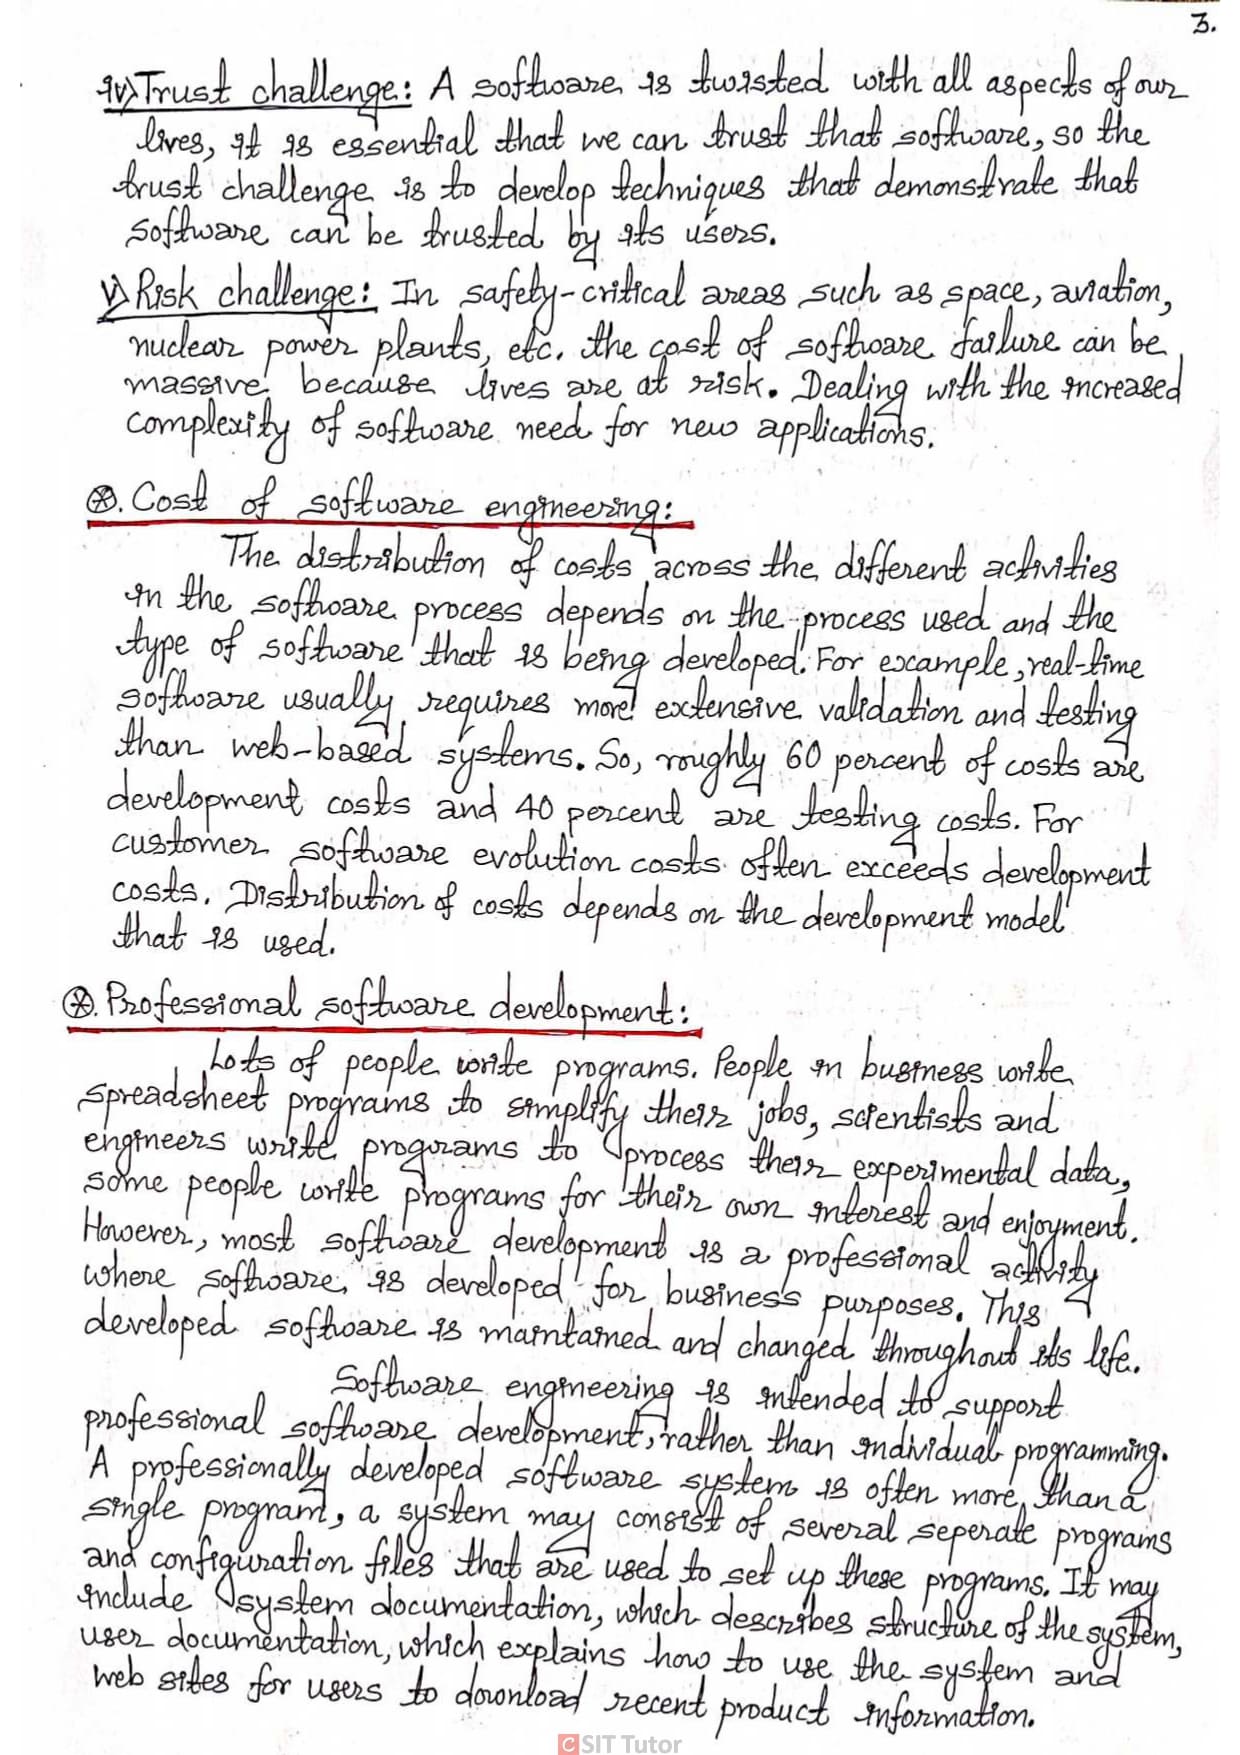 3.
iv) Trust challenge: A software is twisted with all aspects of our
lives, it is essential that we can trust that software, so the
trust challenge is to develop techniques that demonstrate that
software can be trusted by its users.
v) Risk challenge: In safety-critical areas such as space, aviation,
nuclear power plants, etc. the cost of software failure can be
massive because lives are at risk. Dealing with the increased
complexity of software need for new applications.
⊛. Cost of software engineering:
The distribution of costs across the different activities
in the software process depends on the process used and the
type of software that is being developed. For example, real-time
software usually requires more extensive validation and testing
than web-based systems. So, roughly 60 percent of costs are
development costs and 40 percent are testing costs. For
customer software evolution costs often exceeds development
costs. Distribution of costs depends on the development model
that is used.
⊛. Professional software development:
Lots of people write programs. People in business write
spreadsheet programs to simplify their jobs, scientists and
engineers write programs to process their experimental data,
some people write programs for their own interest and enjoyment.
However, most software development is a professional activity
where software is developed for business purposes. This
developed software is maintained and changed throughout its life.
Software engineering is intended to support
professional software development, rather than individual programming.
A professionally developed software system is often more than a
single program, a system may consist of several seperate programs
and configuration files that are used to set up these programs. It may
include system documentation, which describes structure of the system,
user documentation, which explains how to use the system and
web sites for users to download recent product information.
CSIT Tutor